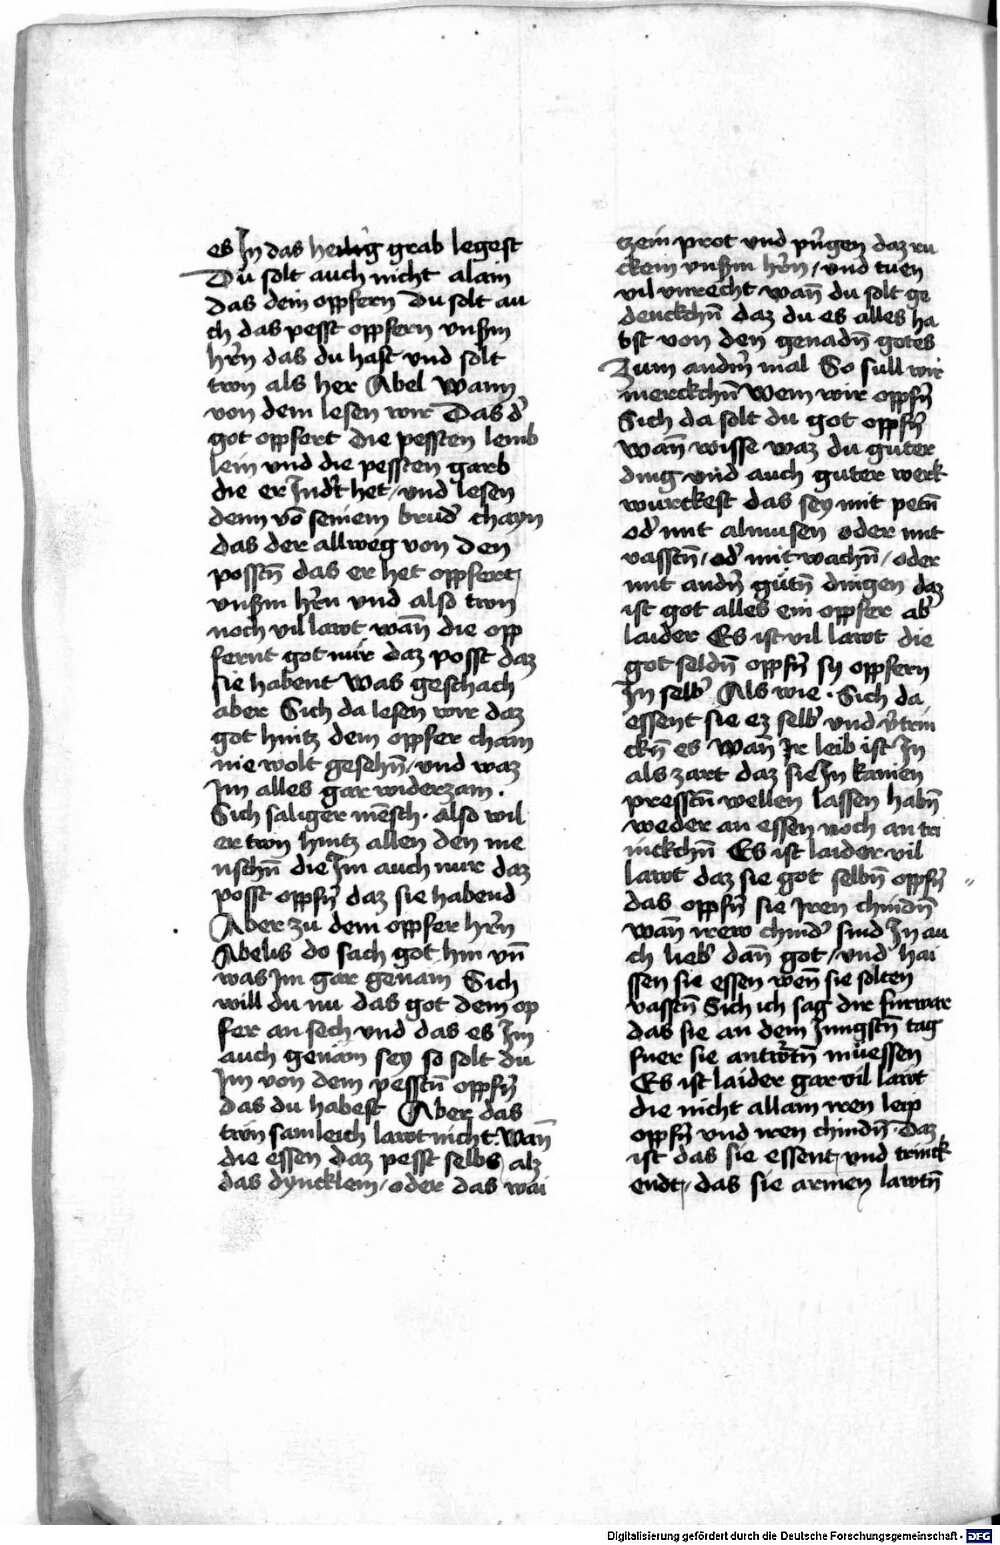 es In das heilig grab legest
Du solt auch nicht alain
das dein oppfern Du solt au
ch das pesst oppfern vnßm
hr̄n das du hast vnd solt
twn als her Abel Wann
von dem lesen wir Das d'
got oppfert die pessten lemb
lein vnd die pessten garb
die er Indt het / vnd lesen
denn vō seniem brud' chayn
das der allweg von den
possтn̄ das er het oppfert
vnßm hr̄n vnd also twn
noch vil lawt wan̄ die opp
fernt got nur daz posst daz
sie habent Was geschach
aber Sich da lesen wir daz
got hintz dem oppfer chain
nie wolt gesehn̄ / vnd waz
Im alles gar widerzam .
Sich saliger mēsch . also wil
er twn hintz allen den me
nschn̄ die Im auch nur daz
posst oppfn̄ daz sie habend
Aber zu dem oppfer hr̄n
Abelis do sach got hin vn̄
was Im gar genam Sich
will du nu das got dem op
fer an sech vnd das es Im
auch genam sey so solt du
Im von dem pesstn̄ oppfn̄
das du habest Aber das
twn samleich lawt nicht . Wan̄
die essen daz pesst selbs alz
das dyncklein / oder das wai
czein prot vnd pringen daz ru
ckein vnßm hr̄n / vnd tuen
vil vnrecht wan̄ du solt ge
denckchn̄ daz du es alles ha
bst von den genadn̄ gotes
Zum andm̄ mal So sull wir
merckchn̄ Wem wir oppfn̄
Sich da solt du got oppfn̄
wan̄ wisse waz du guter
ding vnd auch guter werk
wurckest das sey mit petn̄
od' mit almusen oder mit
vasstn̄ / od' mit wachn̄ / oder
mit andn̄ gutn̄ dingen daz
ist got alles ein oppfer ab'
laider Es ist vil lawt die
got seldn̄ oppfn̄ sy oppfern
In selb' Als wie . Sich da
essent sie ez selb' vnd v'trin
ckn̄ es Wan̄ Ir leib ist In
als zart daz sie In kainen
presstn̄ wellen lassen habn̄
weder an essen noch an tri
nickchn̄ Es ist laider vil
lawt daz sie got selbn̄ oppfn̄
das oppfn̄ sie Iren chindn̄
wan̄ irew chind' sind In au
ch lieb' dan̄ got / vnd hai
ssen sie essen wen̄ sie solten
vasstn̄ Sich ich sag dir furwar
das sie an dem Jungstn̄ tag
fuer sie antwrtn̄ müessen
Es ist laider gar vil lawt
die nicht allain iren leip
oppfn̄ vnd iren chindn̄ Daz
ist das sie essent / vnd trinck
endt / das sie armen lawtn̄
Digitalisierung gefördert durch die Deutsche Forschungsgemeinschaft - DFG